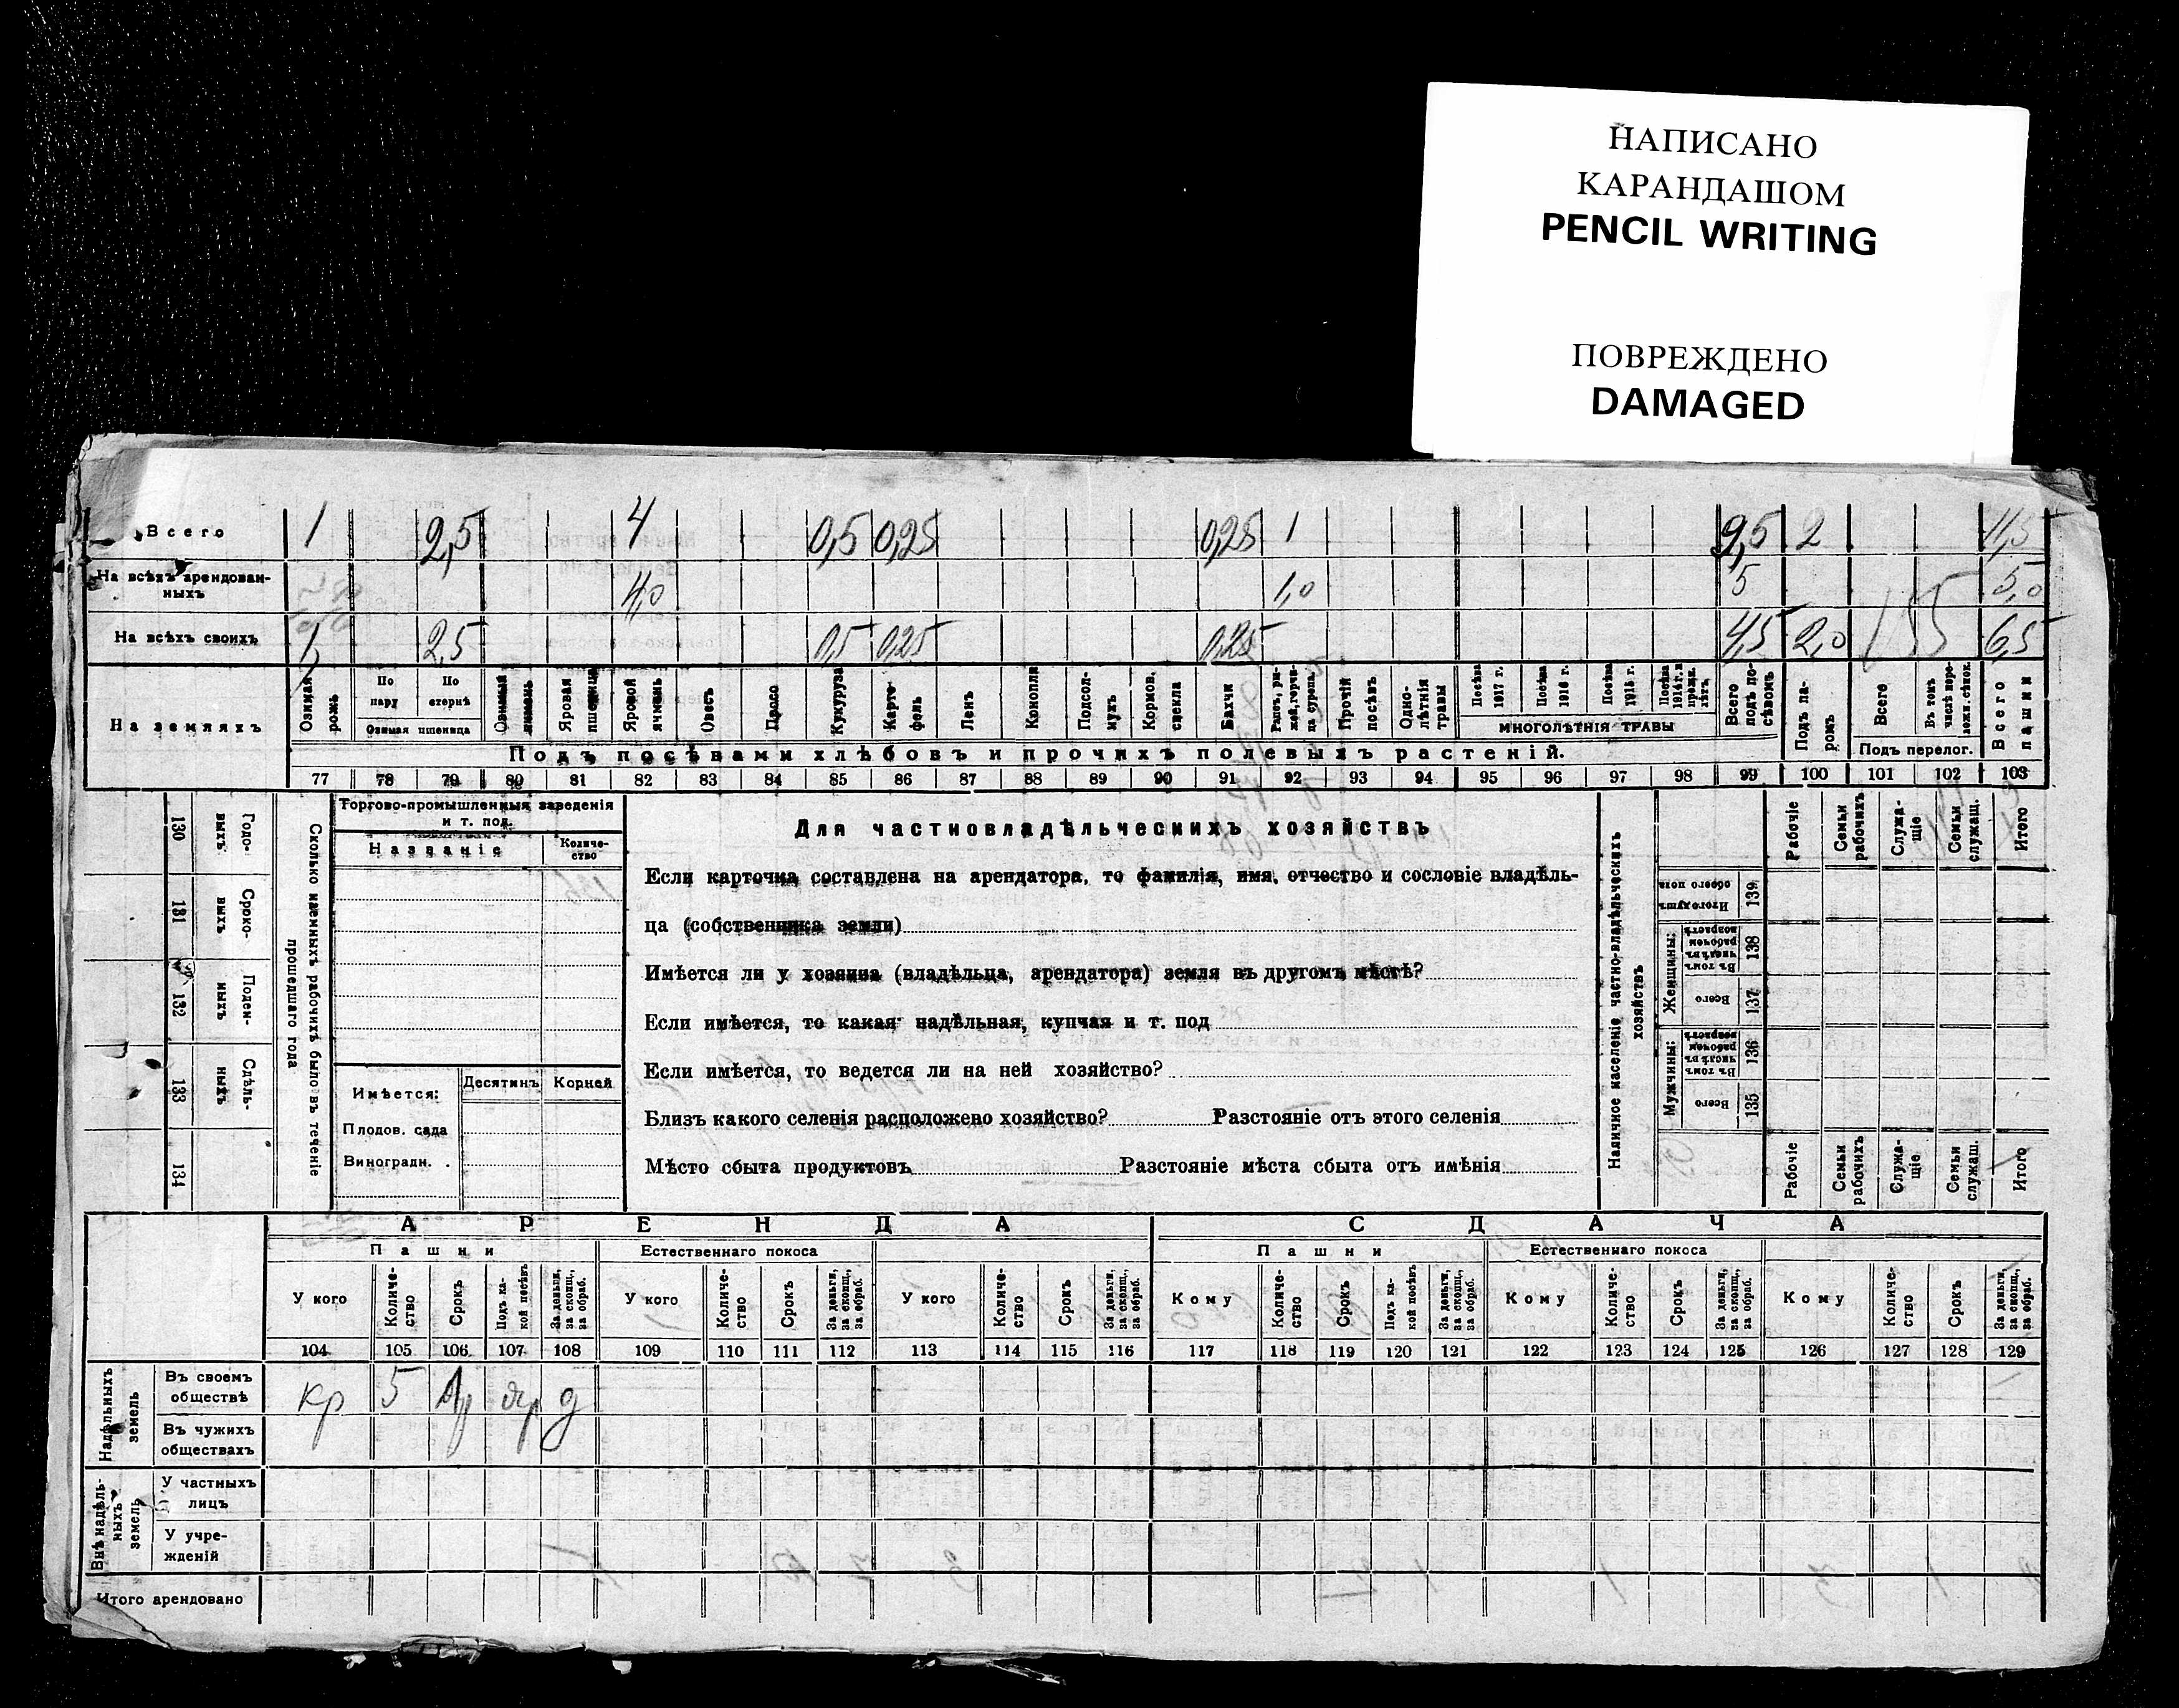 НАПИСАНО
КАРАНДАШОМ
PENCIL WRITING
ПОВРЕЖДЕНО
DAMAGED
Всего 1 2,5 4 0,5 0,25 0,25 1 9,5 2 11,5
На всѣхъ арендован-
ныхъ 4,0 1,0 5 5,0
На всѣхъ своихъ 1 2,5 0,5 0,25 0,25 4,5 2,0 6,5
На земляхъ
Озимая рожь
По пару
По стернѣ
Озимая пшеница
Яровая пшеница
Яровой ячмень
Овесъ
Просо
Кукуруза
Карто-
фель
Ленъ
Конопля
Подсол-
нухъ
Кормов.
свекла
Бахчи
Прочій
посѣвъ
Одно-
лѣтнія
травы
Посѣва
1917 г.
Посѣва
1916 г.
Посѣва
1915 г.
МНОГОЛѢТНІЯ ТРАВЫ
Всего
подъ по-
сѣвомъ
Подъ па-
ромъ
Всего
Подъ перелог.
Всего
пашни
Подъ посѣвами хлѣбовъ и прочихъ полевыхъ растеній.
77 78 79 80 81 82 83 84 85 86 87 88 89 90 91 92 93 94 95 96 97 98 99 100 101 102 103
130 Годо-
выхъ
131 Сроко-
выхъ
132 Поден-
ныхъ
133 Сдѣль-
ныхъ
134
Сколько наемныхъ рабочихъ было въ теченіе
прошедшаго года
Торгово-промышленныя заведенія
и т. под.
Названіе
Количе-
ство
Имѣется:
Десятинъ
Корней
Плодов. сада
Виноградн.
Для частновладѣльческихъ хозяйствъ
Если карточка составлена на арендатора, то фамилія, имя, отчество и сословіе владѣль-
ца (собственника земли)
Имѣется ли у хозяина (владѣльца, арендатора) земля въ другомъ мѣстѣ?
Если имѣется, то какая надѣльная, купчая и т. под
Если имѣется, то ведется ли на ней хозяйство?
Близъ какого селенія расположено хозяйство? Разстояніе отъ этого селенія
Мѣсто сбыта продуктовъ Разстояніе мѣста сбыта отъ имѣнія
Наличное населеніе частно-владѣльческихъ
хозяйствъ
Рабочіе
Семьи
рабочихъ
Служа-
щіе
Семьи
служащ.
Итого
Итого душъ
обоего пола
139
Женщины:
Въ томъ
числѣ въ
рабочем
возрастѣ
138
Всего
137
Мужчины:
Въ томъ
числѣ въ
рабочем
возрастѣ
136
Всего
135
Рабочіе
Семьи
рабочихъ
Служа-
щіе
Семьи
служащ.
Итого
АРЕНДА СДАЧА
Пашни Естественнаго покоса Пашни Естественнаго покоса
У кого
Количе-
ство
Срокъ
Подъ ка-
кой посѣвъ
За деньги,
за скопщ.,
за обраб.
У кого
Количе-
ство
Срокъ
За деньги,
за скопщ.,
за обраб.
У кого
Количе-
ство
Срокъ
За деньги,
за скопщ.,
за обраб.
Кому
Количе-
ство
Срокъ
Подъ ка-
кой посѣвъ
За деньги,
за скопщ.,
за обраб.
Кому
Количе-
ство
Срокъ
За деньги,
за скопщ.,
за обраб.
Кому
Количе-
ство
Срокъ
За деньги,
за скопщ.,
за обраб.
104 105 106 107 108 109 110 111 112 113 114 115 116 117 118 119 120 121 122 123 124 125 126 127 128 129
Надѣльныхъ
земель
Въ своемъ
обществѣ
кр 5 д
Въ чужихъ
обществахъ
Внѣ надѣль-
ныхъ
земель
У частныхъ
лицъ
У учре-
жденій
Итого арендовано